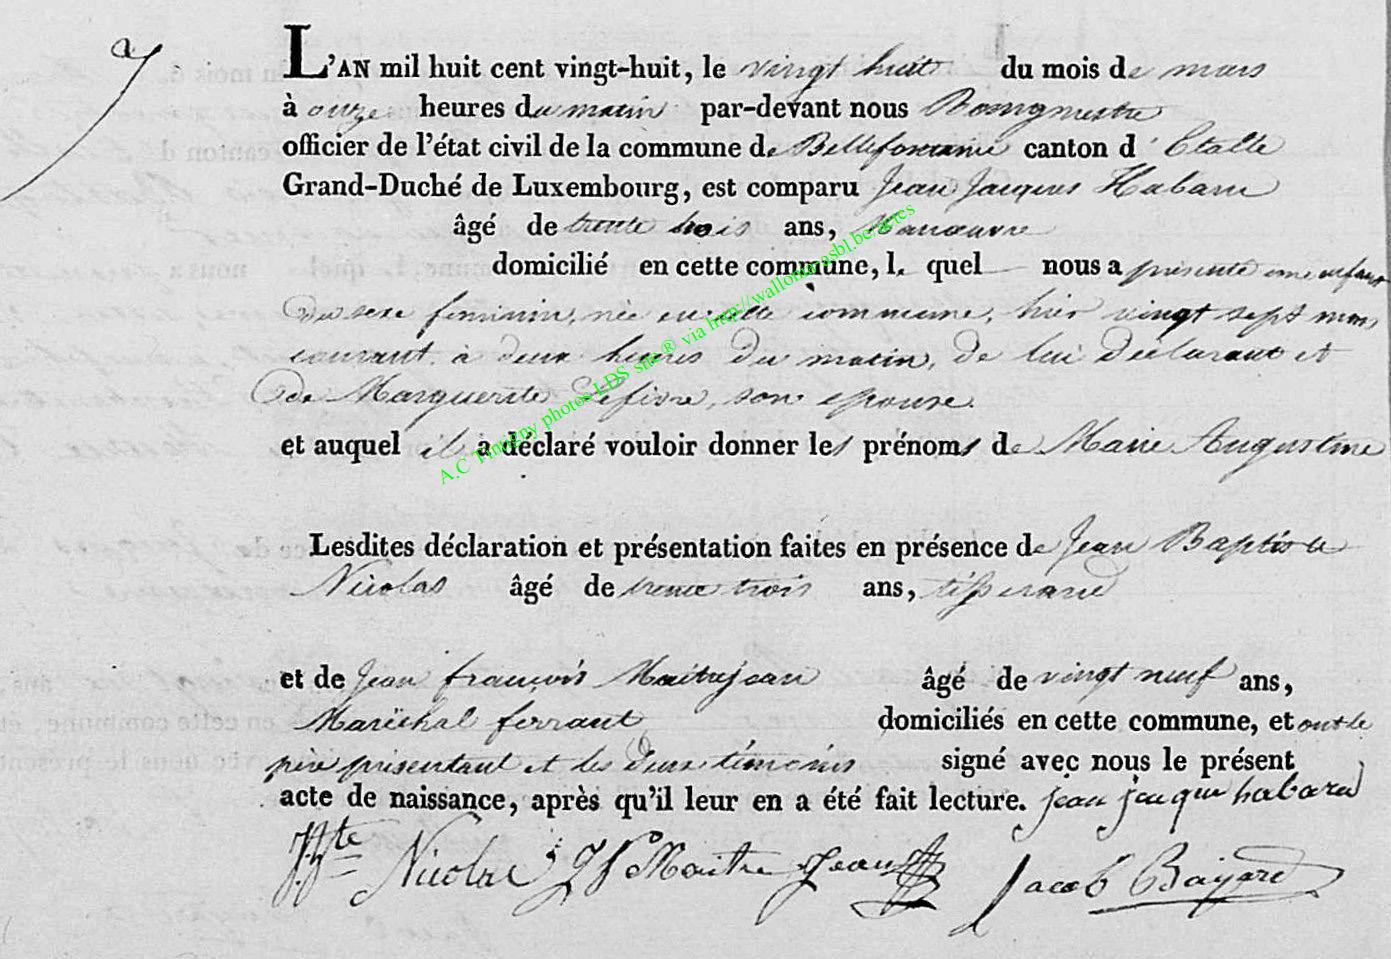 7
L'AN mil huit cent vingt-huit, le vingt huit du mois de mars
à onze heures du matin par-devant nous Bourgmestre
officier de l'état civil de la commune de Bellefontaine canton d'Etalle
Grand-Duché de Luxembourg, est comparu Jean Jacques Habaru
âgé de trente trois ans, Manœuvre
domicilié en cette commune, le quel nous a présenté une enfant
du sexe féminin, née en cette commune, hier vingt sept mars
courant, à deux heures du matin, de lui déclarant et
de Marguerite Lefevre, son épouse.
et auquel il a déclaré vouloir donner les prénoms de Marie Augustine
Lesdites déclaration et présentation faites en présence de Jean Baptiste
Nicolas âgé de trente trois ans, tisserand
et de Jean françois Maitrejean âgé de vingt neuf ans,
Maréchal ferrant domiciliés en cette commune, et ont le
père présentant et les deux témoins signé avec nous le présent
acte de naissance, après qu'il leur en a été fait lecture. jean jacque habaru
J Bte Nicolas J f Maitrejean Jacob Bayard
A.C Tintigny photos LDS site ® via http://wallonia.asbl.be/actes